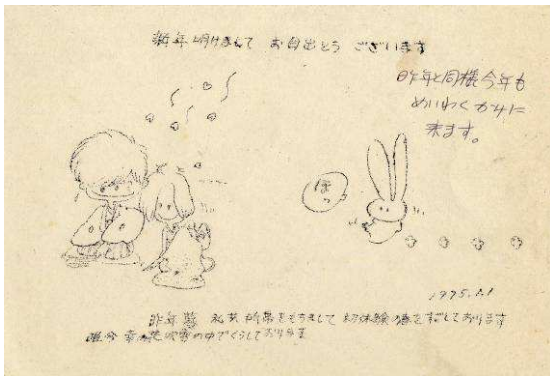 新年明けまして お目出とう ございます
昨年と同様今年も
めいわくかけに
来ます。
ほっ
1975.1.1
昨年 私共 所帯をもちまして 初体験の春をすごしております
唯今 の中でくらしております